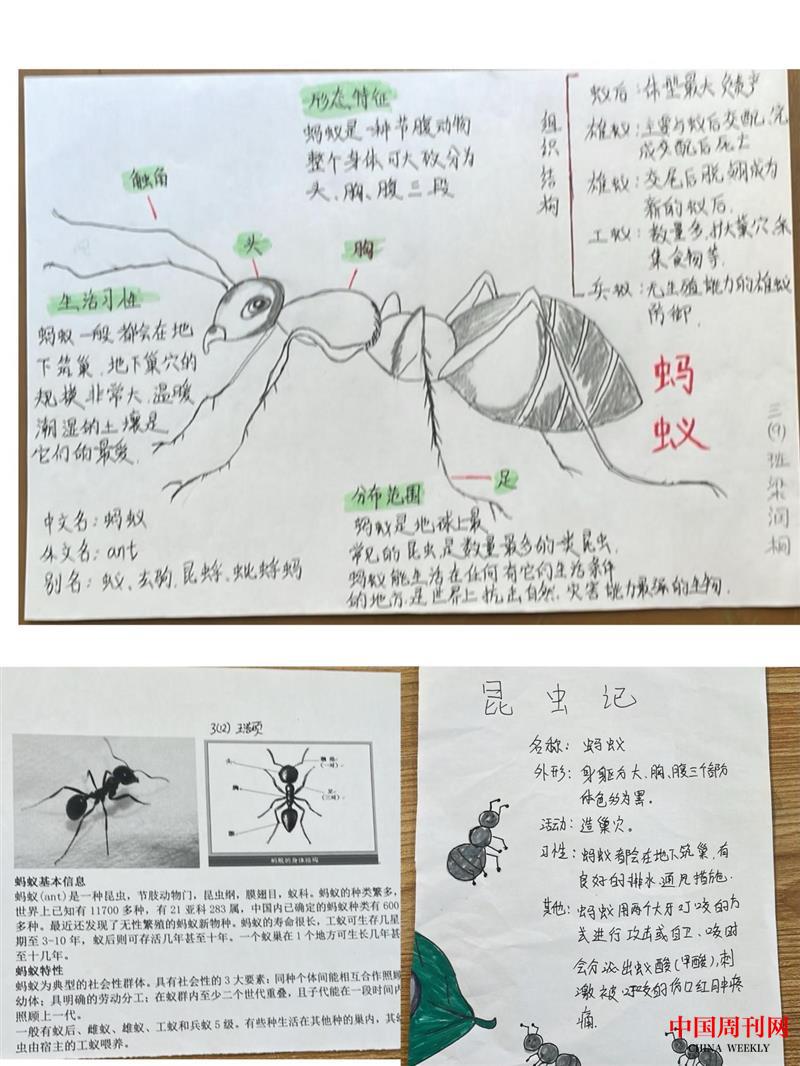 形态特征
蚂蚁是一种节腹动物
整个身体可大致分为
头、胸、腹三段
组织结构
蚁后:体型最大负责产
雄蚁:主要与蚁后交配,完
成交配后死亡
雄蚁:交尾后脱翅成为
新的蚁后.
工蚁:数量多,扩大巢穴,采
集食物等.
兵蚁:无生殖能力的雄蚁
防御.
触角
头
胸
生活习性
蚂蚁一般都会在地
下筑巢.地下巢穴的
规模非常大,温暖
潮湿的土壤是
它们的最爱.
蚂蚁
三(9)班梁润桐
足
中文名:蚂蚁
外文名:ant
别名:蚁、玄驹、昆蜉、蚍蜉蚂
分布范围
蚂蚁是地球上最
常见的昆虫是数量最多的一类昆虫.
蚂蚁能生活在任何有它们生活条件
的地方.是世界上抗击自然.灾害能力最强的生物.
3(12)
头
胸
腹
触角
(一对)
足
(三对)
蚂蚁的身体结构
蚂蚁基本信息
蚂蚁(ant)是一种昆虫,节肢动物门,昆虫纲,膜翅目,蚁科。蚂蚁的种类繁多,
世界上已知有 11700 多种,有 21 亚科 283 属,中国内已确定的蚂蚁种类有 600
多种。最近还发现了无性繁殖的蚂蚁新物种。蚂蚁的寿命很长,工蚁可生存几星
期至 3-10 年,蚁后则可存活几年甚至十年。一个蚁巢在 1 个地方可生长几年甚
至十几年。
蚂蚁特性
蚂蚁为典型的社会性群体。具有社会性的 3 大要素:同种个体间能相互合作照顾
幼体;具明确的劳动分工;在蚁群内至少二个世代重叠,且子代能在一段时间内
照顾上一代。
一般有蚁后、雌蚁、雄蚁、工蚁和兵蚁 5 级。有些种生活在其他种的巢内,其幼
虫由宿主的工蚁喂养。
昆虫记
名称:蚂蚁
外形:身躯分大、胸、腹三个部分
体色多为黑.
活动:造巢穴.
习性:蚂蚁都会在地下筑巢,有
良好的排水、通风措施.
其他:蚂蚁用两个大牙叮咬的方
式进行攻击或自卫、咬时
会分泌出蚁酸(甲酸),刺
激被叮咬的伤口红肿疼
痛.
中国周刊网
CHINA WEEKLY